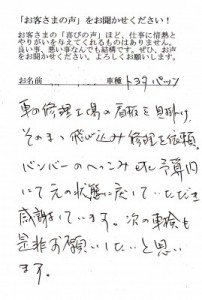 「お客さまの声」をお聞かせください！
お客さまの「喜びの声」ほど、仕事に情熱と
やりがいを与えてくれるものはありません。
良い事、悪い事なんでも結構です。ぜひ、お声
をお聞かせください。よろしくお願いします。
お名前 車種 トヨタ パッソ
車の修理工場の看板を見掛け、
そのまま飛び込み修理を依頼。
バンパーのへっこみ 予算内
にて元の状態に戻していただき
感謝しています。次の車検も
是非お願いしたいと思い
ます。